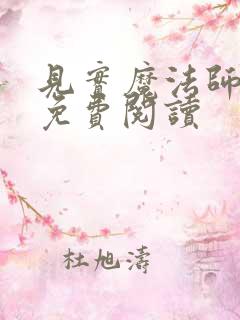 見實魔法師
免費閱讀
杜旭濤